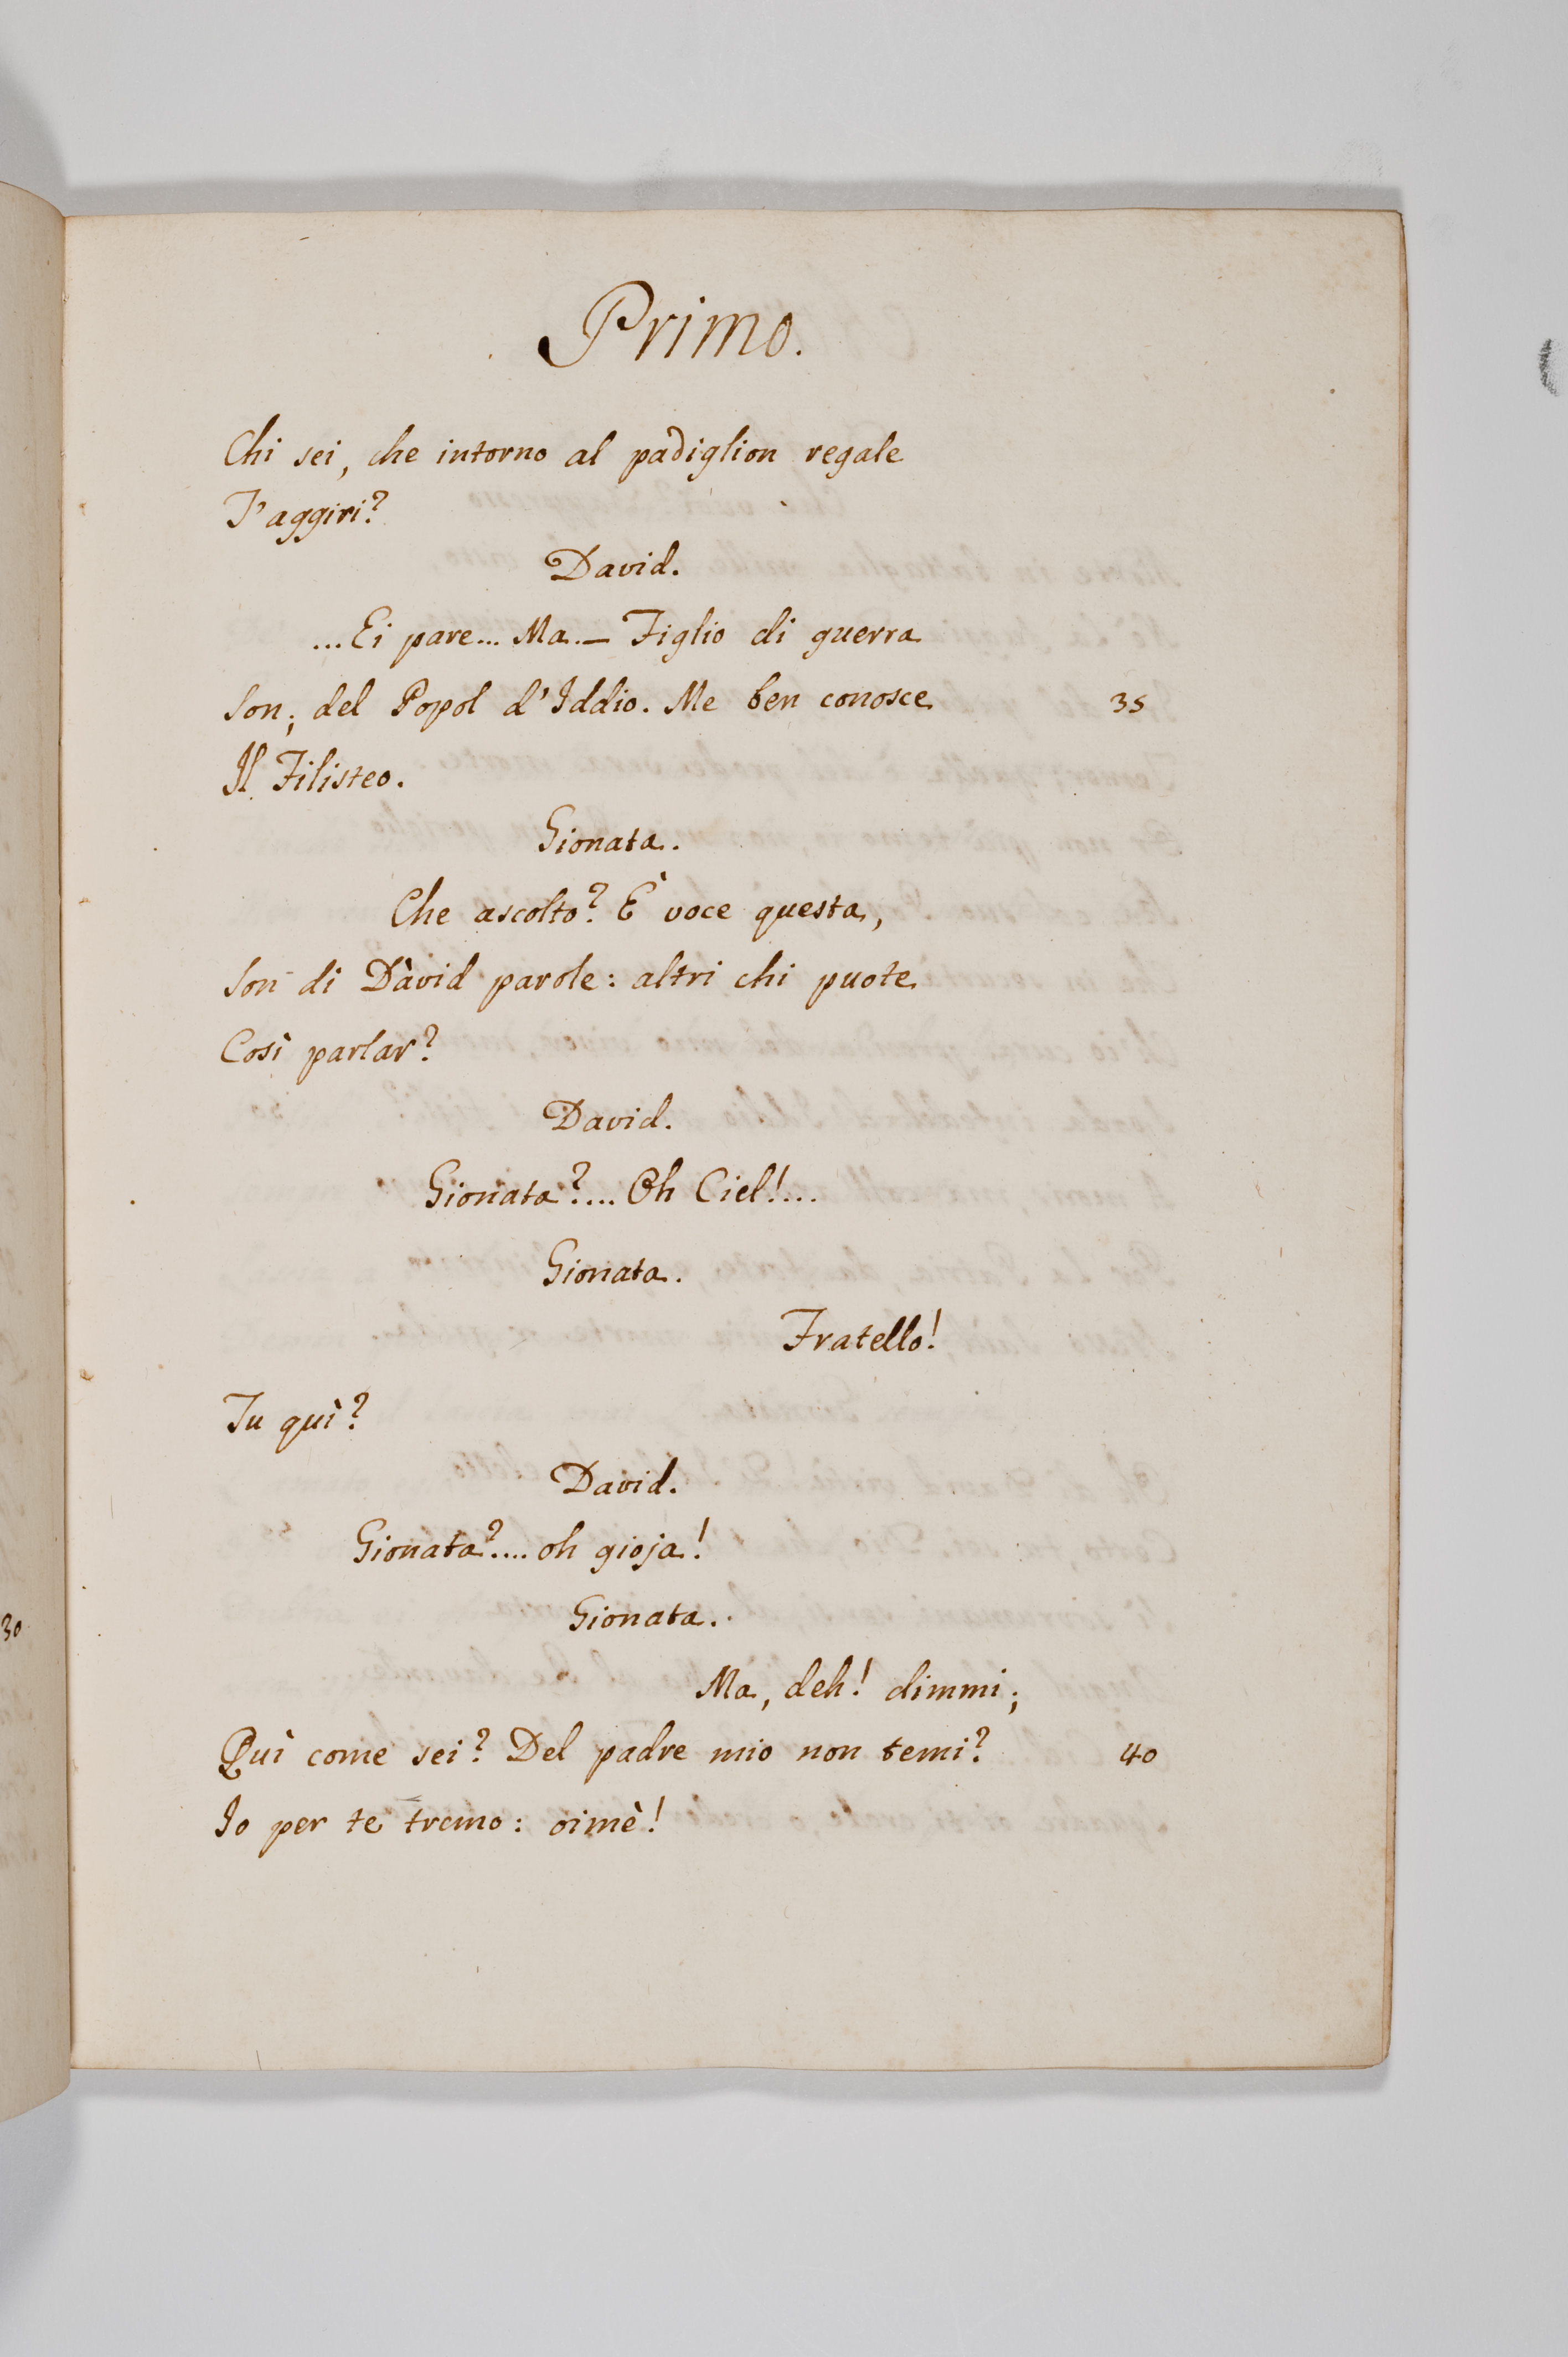 Primo.
Chi sei, che intorno al padiglion regale
T'aggiri?
David.
...Ei pare... Ma... — Figlio di guerra
Son; del Popol d'Iddio. Me ben conosce 35
Il Filisteo.
Gionata.
Che ascolto? È voce questa,
Son di Dàvid parole: altri chi puote
Così parlar?
David.
Gionata?.... Oh Ciel!...
Gionata.
Fratello!
Tu quì?
David.
Gionata?.... oh gioja!
Gionata.
Ma, deh! dimmi;
Quì come sei? Del padre mio non temi? 40
Io per te tremo: oimè!
30